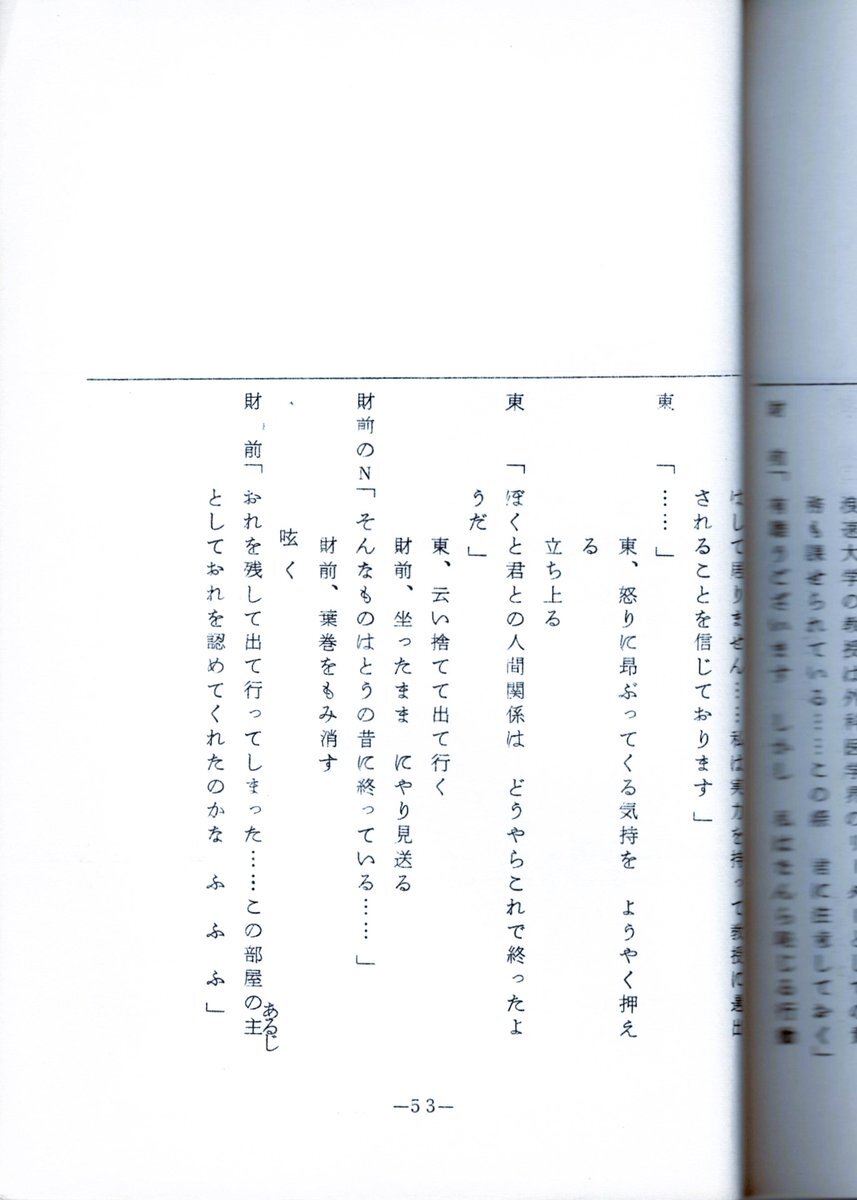 浪速大学の教授は外科医学界の
務も課せられている……この際 君に注意しておく」
財 前「有難うございます しかし 私はなんら恥じる行動
はして居りません……私は実力を持って教授に選出
されることを信じております」
東 「……」
東、怒りに昻ぶってくる気持を ようやく押え
る
立ち上る
東 「ぼくと君との人間関係は どうやらこれで終ったよ
うだ」
東、云い捨てて出て行く
財前、坐ったまま にやり見送る
財前のN「そんなものはとうの昔に終っている……」
財前、葉巻をもみ消す
呟く
財 前「おれを残して出て行ってしまった……この部屋の主
あるじ
としておれを認めてくれたのかな ふ ふ ふ」
—53—